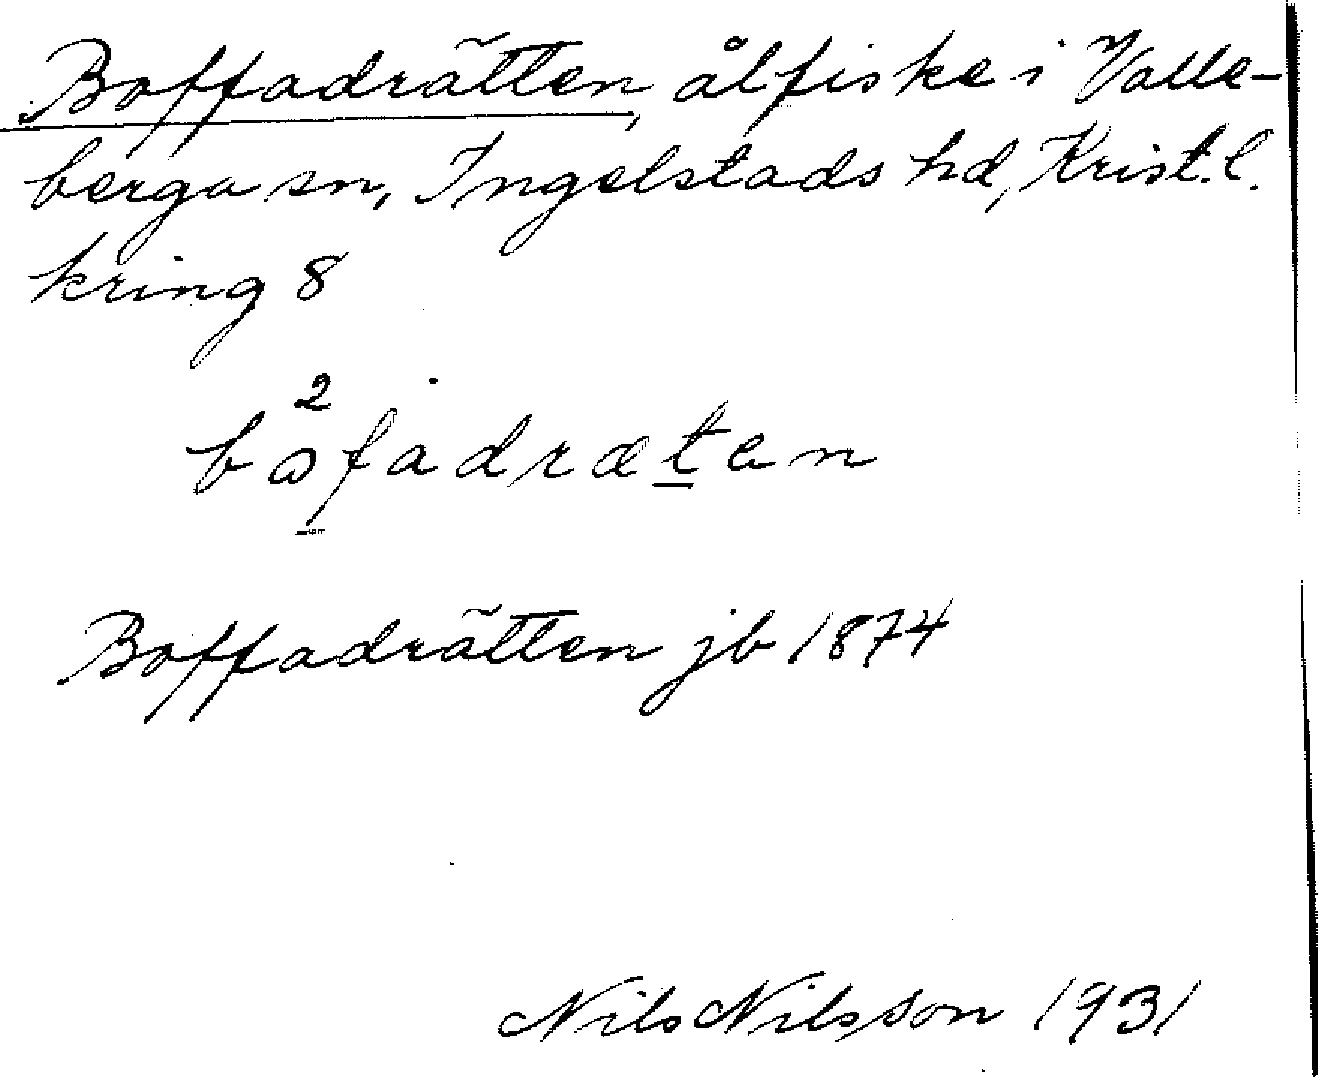 Boffadrätten, ålfiske i Valle-
berga sn, Ingelstads hd, Krist. l.
kring 8
Boffadrätten jb 1874
Nils Nilsson 1931